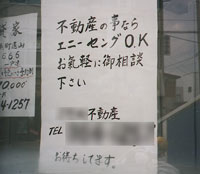 不動産の事なら
エニーセングO.K
お気軽に御相談
下さい
不動産
TEL
お待ちしてます。
貸家
0,000
4-1257